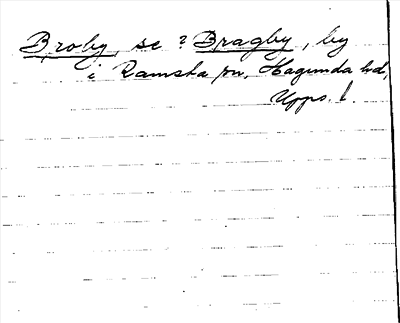 Broby, se ? Bragby, by
i Ramsta sn, Hagunda hd,
Upps. l.